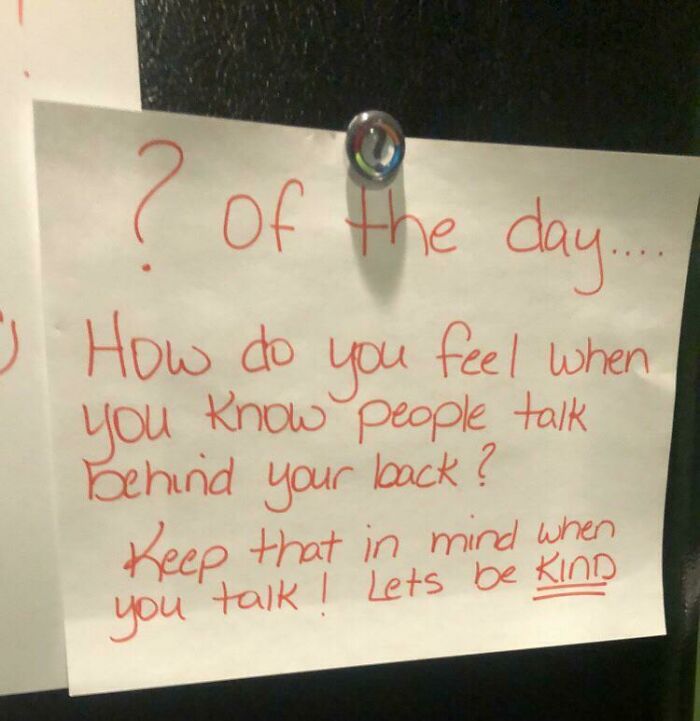 ? of the day....
How do you feel when
you know people talk
behind your back?
Keep that in mind when
you talk! Lets be KIND